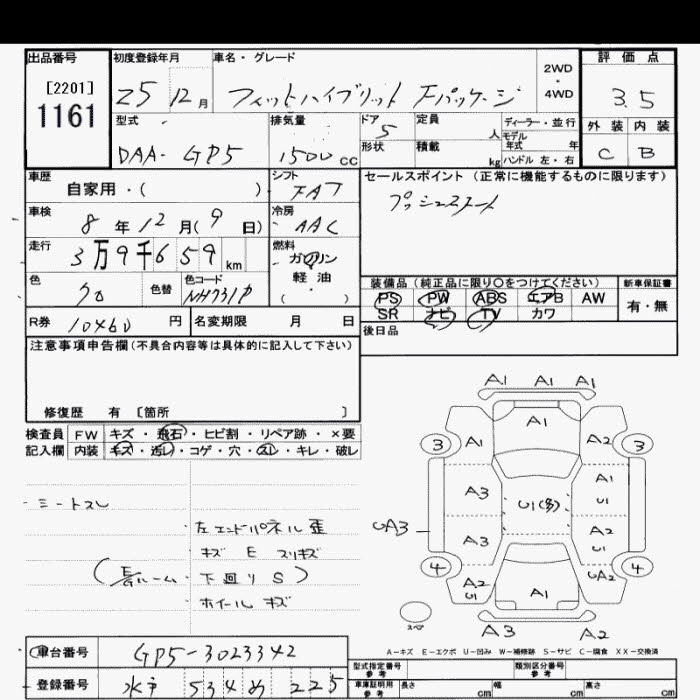 出品番号
[2201]
1161
初度登録年月
25 12月
車名・グレード
フィットハイブリット Fパッケージ
2WD
・
4WD
評価点
3.5
型式
DAA-GP5
排気量
1500 cc
ドア
5
形状
定員
人
積載
kg
ディーラー・並行
モデル
年式 年
ハンドル 左・右
外装 内装
C B
車歴
自家用・( )
シフト
FAT
車検
8年12月(9日)
冷房
AAC
走行
3万9千659km
燃料
ガソリン
・
軽油
・
( )
色
クロ
色替
色コード
NH731P
R券 10460円
名変期限 月 日
セールスポイント(正常に機能するものに限ります)
プッシュスタート
装備品(純正品に限り○をつけてください)
PS PW ABS エアB AW
SR ナビ TV カワ
新車保証書
有・無
後日品
注意事項申告欄(不具合内容等は具体的に記入して下さい)
修復歴 有 [箇所 ]
検査員 FW キズ・飛石・ヒビ割・リペア跡・×要
記入欄 内装 キズ・汚レ・コゲ・穴・スレ・キレ・破レ
・シートスレ
・左エンドパネル歪
・キズ E スリキズ
・下廻りS
・ホイールキズ
A1 A1 A1
A1
3 A1 A2 3
A3 U1(多) A1
U1
UA3
A3 A2
U1
4 A2
U1 A1 UA2 4
スペ
A3 A2
A-キズ E-エクボ U-凹み W-補修跡 S-サビ C-腐食 XX-交換済
車台番号 GP5-3023342
登録番号 水戸 534 め 225
型式指定番号
参考
類別区分番号
参考
車庫証明用
参考
長さ cm 幅 cm 高さ cm